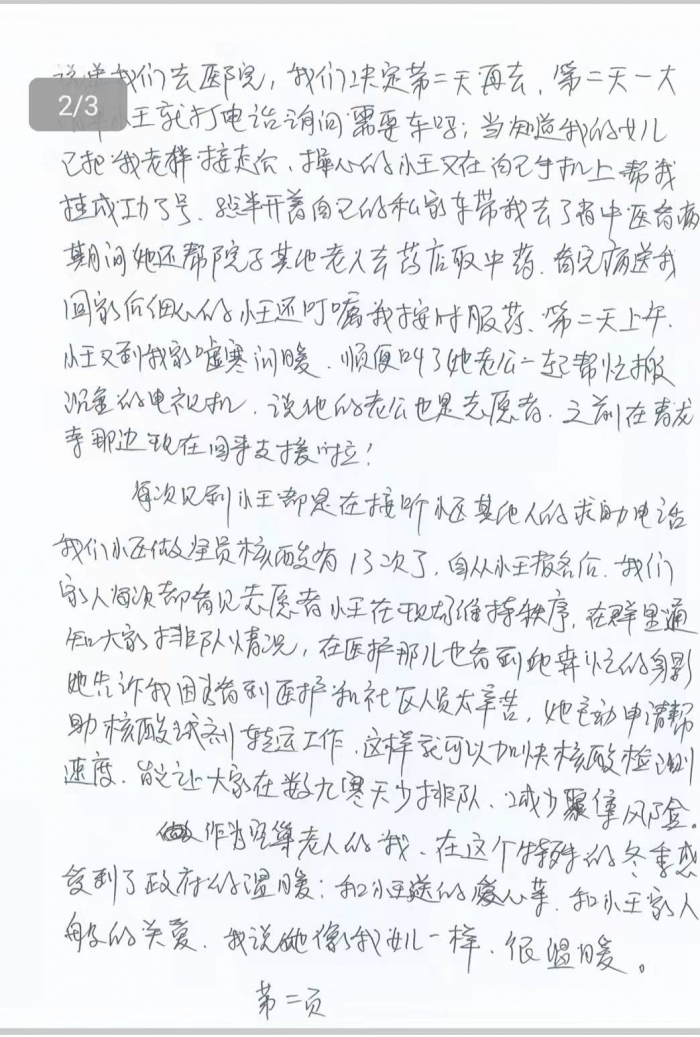 我们去医院，我们决定第二天再去，第二天一大
2/3
小王就打电话询问需要车吗；当知道我的女儿
已把我老伴接走后、操心的小王又在自己手机上帮我
挂成功了号、然半开着自己的私家车带我去了省中医看病
期间她还帮院子其他老人去药店取中药、看完病送我
回家后细心的小王还叮嘱我按时服药、第二天上午
小王又到我家嘘寒问暖、顺便叫了她老公一起帮忙搬
沉重的电视机、说他的老公也是志愿者、之前在青龙
寺那边现在回来支援
每次见到小王都是在接听小区其他人的求助电话
我们小区做全员核酸有13次了，自从小王报名后、我们
家人每次都看见志愿者小王在现场维持秩序，在群里通
知大家排队情况，在医护那儿也看到她奔忙的身影
她告诉我因为看到医护和社区人员太辛苦，她主动申请帮
助核酸试剂转运工作、这样就可以加快核酸检测
速度、能让大家在数九寒天少排队、减少聚集风险。
作为空巢老人的我、在这个特殊的冬季感
受到了政府的温暖；和小王送的爱心菜、和小王家人
般的关爱、我说她像我女儿一样、很温暖。
第二页